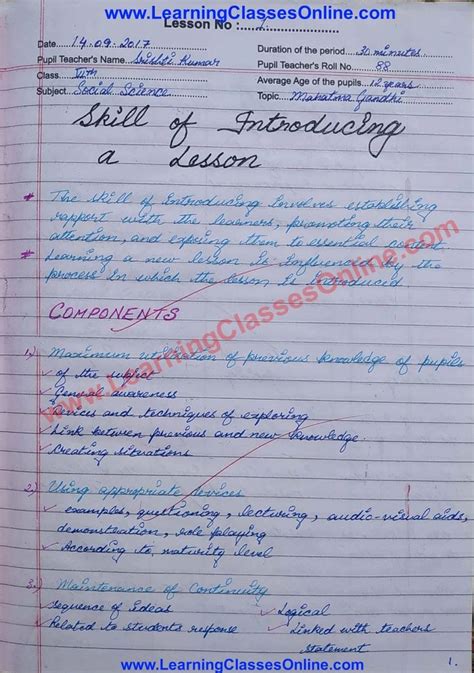 www.LearningClassesOnline.com
Lesson No :.... 1
Date.... 14.09.2017
Duration of the period.... 30 minutes
Pupil Teacher's Name.. Srishti Kumar
Pupil Teacher's Roll No.... 88
Class.... VIth
Average Age of the pupils.. 12 years
Subject.... Social Science
Topic.... Mahatma Gandhi
Skill of Introducing
a Lesson
* The skill of Introducing involves establishing
rapport with the learners, promoting their
attention, and exposing them to essential content
* Learning a new lesson is influenced by the
process in which the lesson is introduced
www.LearningClassesOnline.com
COMPONENTS
1.) Maximum utilization of previous knowledge of pupils
✓ of the subject
✓ General awareness
✓ Devices and techniques of exploring
✓ Link between previous and new knowledge.
✓ Creating siterations
2.) Using appropriate devices
✓ examples, questioning, lecturing, audio-visual aids,
demonstration, role playing
✓ According to maturity level
3.) Maintenance of Continuity
✓ Sequence of ideas ✓ Logical
✓ Related to students response ✓ Linked with teachers
statement
1.
www.LearningClassesOnline.com